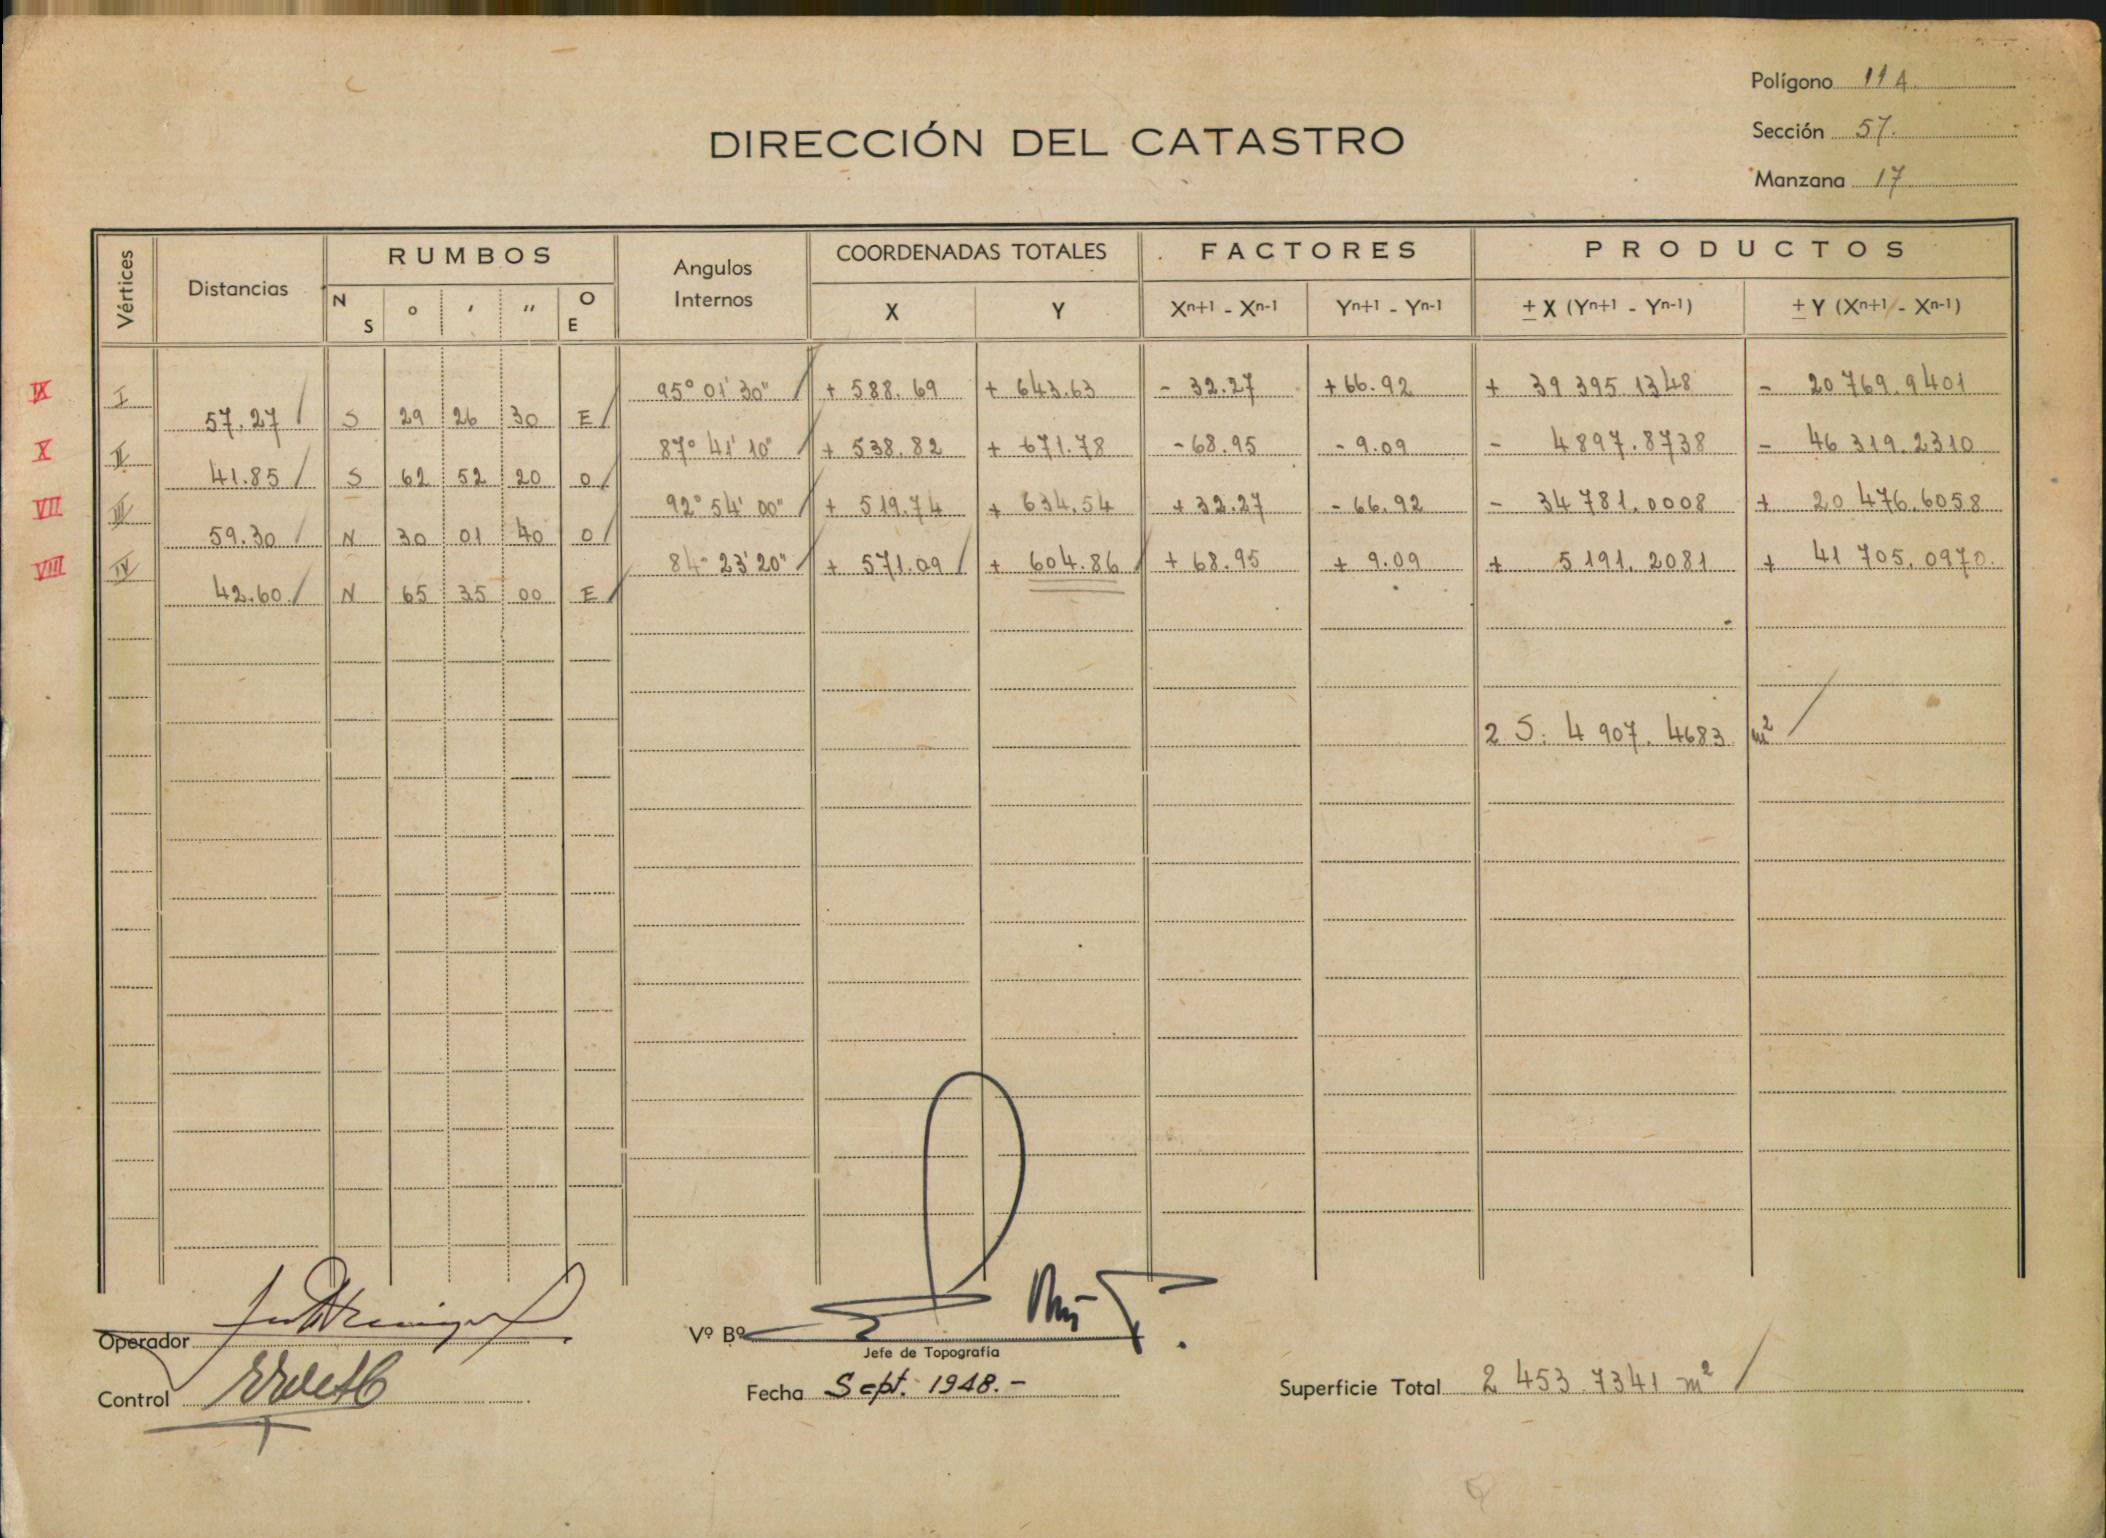 Polígono 11A.
Sección 57.
Manzana 17
DIRECCIÓN DEL CATASTRO
Vértices Distancias RUMBOS Angulos Internos COORDENADAS TOTALES FACTORES PRODUCTOS
N S ° ' " O E X Y Xn+1 - Xn-1 Yn+1 - Yn-1 ± X (Yn+1 - Yn-1) ± Y (Xn+1 - Xn-1)
IX I 95° 01' 30" + 588.69 + 643.63 - 32.27 + 66.92 + 39 395.1348 - 20 769.9401
57.27 S 29 26 30 E
X II 87° 41' 10" + 538.82 + 671.78 - 68.95 - 9.09 - 4897.8738 - 46 319.2310
41.85 S 62 52 20 O
VII III 92° 54' 00" + 519.74 + 634.54 + 32.27 - 66.92 - 34 781.0008 + 20 476.6058
59.30 N 30 01 40 O
VIII IV 84° 23' 20" + 571.09 + 604.86 + 68.95 + 9.09 + 5 191.2081 + 41 705.0970.
42.60 N 65 35 00 E
2 S: 4 907.4683 m²
Operador
Vº Bº
Jefe de Topografía
Control
Fecha Sept. 1948.-
Superficie Total 2 453.7341 m²